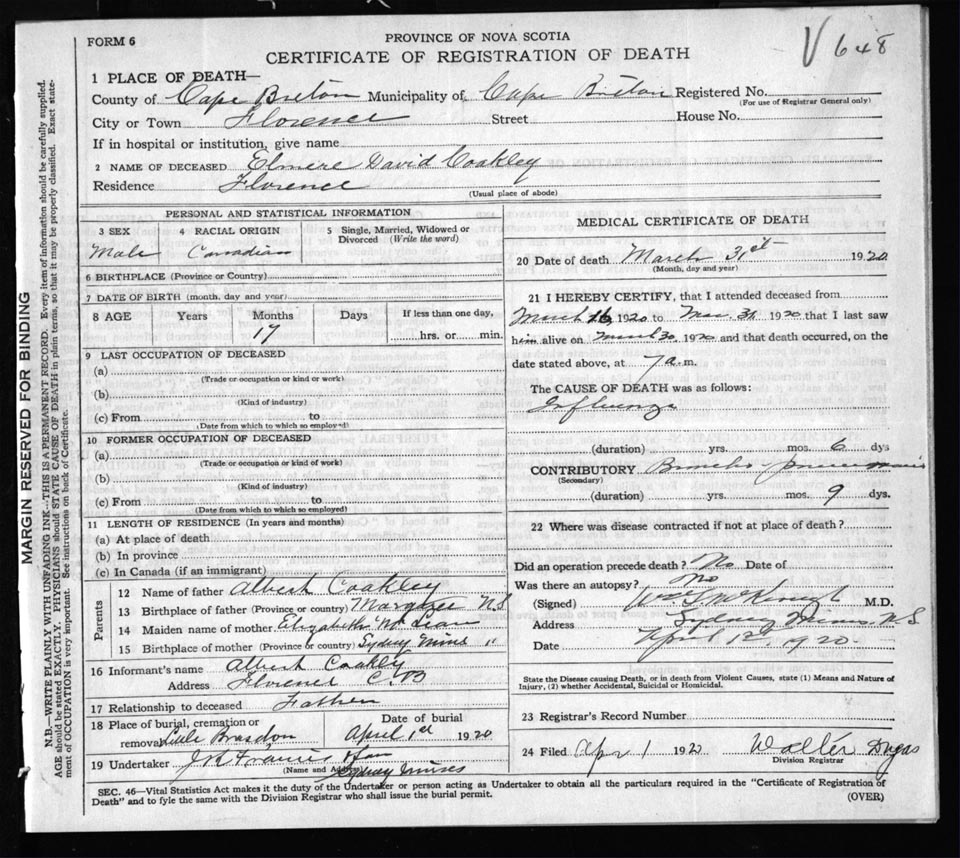 FORM 6
PROVINCE OF NOVA SCOTIA
CERTIFICATE OF REGISTRATION OF DEATH
V 648
1 PLACE OF DEATH—
County of Cape Breton Municipality of Cape Breton Registered No.
(For use of Registrar General only)
City or Town Florence Street House No.
If in hospital or institution, give name
2 NAME OF DECEASED Elmere David Coakley
Residence Florence
(Usual place of abode)
MARGIN RESERVED FOR BINDING
N.B.—WRITE PLAINLY WITH UNFADING INK—THIS IS A PERMANENT RECORD. Every item of information should be carefully supplied.
AGE should be stated EXACTLY. PHYSICIANS should STATE CAUSE OF DEATH in plain terms, so that it may be properly classified. Exact state-
ment of OCCUPATION is very important. See instructions on back of Certificate.
PERSONAL AND STATISTICAL INFORMATION
3 SEX 4 RACIAL ORIGIN 5 Single, Married, Widowed or
Divorced (Write the word)
Male Canadian
6 BIRTHPLACE (Province or Country)
7 DATE OF BIRTH (month, day and year)
8 AGE Years Months Days If less than one day,
17 hrs. or min.
9 LAST OCCUPATION OF DECEASED
(a)
(Trade or occupation or kind or work)
(b)
(Kind of industry)
(c) From to
(Date from which to which so employed)
10 FORMER OCCUPATION OF DECEASED
(a)
(Trade or occupation or kind of work)
(b)
(Kind of industry)
(c) From to
(Date from which to which so employed)
11 LENGTH OF RESIDENCE (In years and months)
(a) At place of death
(b) In province
(c) In Canada (if an immigrant)
Parents
12 Name of father Albert Coakley
13 Birthplace of father (Province or country) Margaree N.S
14 Maiden name of mother Elizabeth Mc Lean
15 Birthplace of mother (Province or country) Sydney Mines "
16 Informant's name Albert Coakley
Address Florence C.B
17 Relationship to deceased Father
18 Place of burial, cremation or Date of burial
removal Little Brasdon April 1st 1920
19 Undertaker J R Francis
(Name and Address) Sydney Mines
MEDICAL CERTIFICATE OF DEATH
20 Date of death March 31st 1920
(Month, day and year)
21 I HEREBY CERTIFY, that I attended deceased from
March 16, 1920 to Mar. 31 1920 that I last saw
him alive on March 30 1920 and that death occurred, on the
date stated above, at 7 a.m.
The CAUSE OF DEATH was as follows:
Influenza
(duration) yrs. mos. 6 dys
CONTRIBUTORY Broncho pneumonia
(Secondary)
(duration) yrs. mos. 9 dys.
22 Where was disease contracted if not at place of death?
Did an operation precede death? No Date of
Was there an autopsy? No
(Signed) M.D.
Address Sydney Mines N.S.
Date April 1st 1920
State the Disease causing Death, or in death from Violent Causes, state (1) Means and Nature of
Injury, (2) whether Accidental, Suicidal or Homicidal.
23 Registrar's Record Number
24 Filed Apr 1 192 Walter Dugas
Division Registrar
SEC. 46—Vital Statistics Act makes it the duty of the Undertaker or person acting as Undertaker to obtain all the particulars required in the "Certificate of Registration of
Death" and to fyle the same with the Division Registrar who shall issue the burial permit. (OVER)